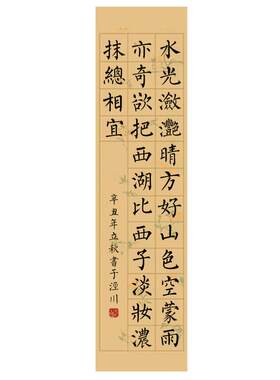 水光瀲灩晴方好山色空蒙雨
亦奇欲把西湖比西子淡妝濃
抹總相宜
辛丑年立秋書于涇川